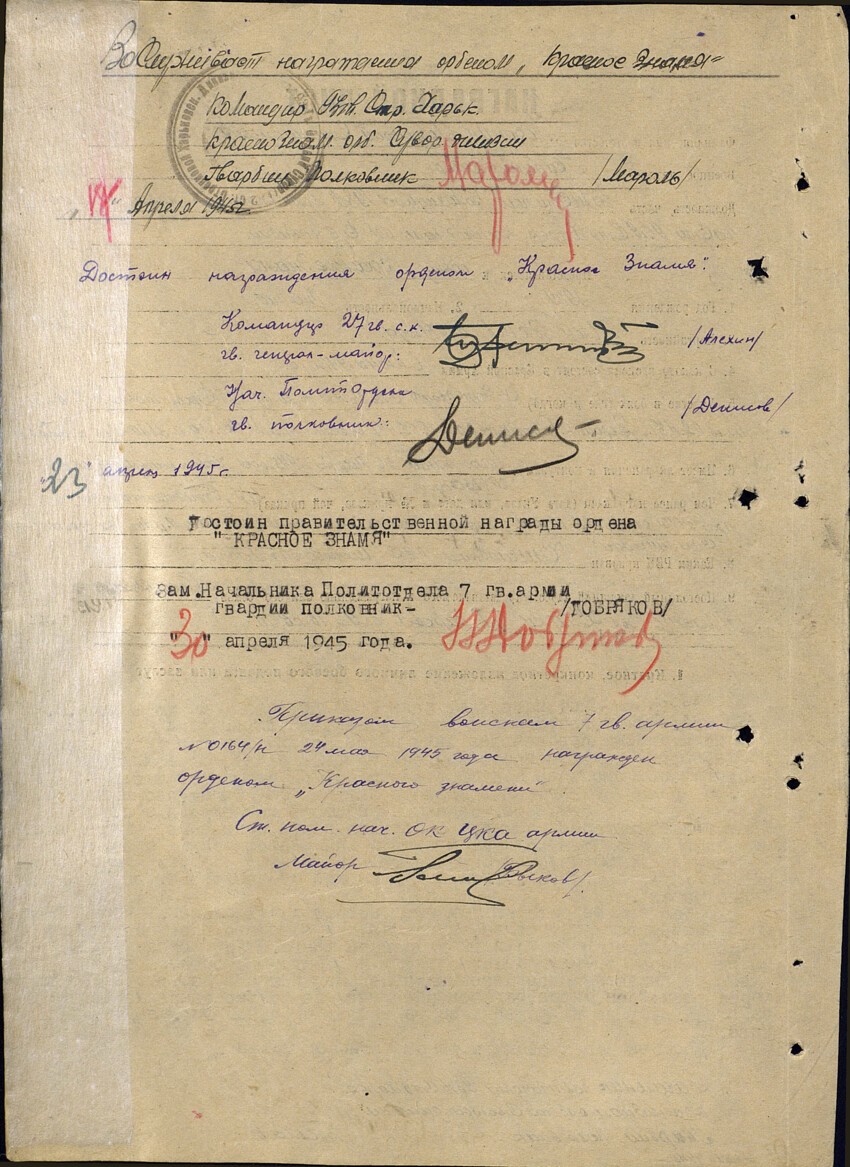 Заслуживает награждения орденом „Красное Знамя"
Командир Стр. Харьк.
краснознам. орд. Сувор. дивизии
Гвардии Полковник /Мароль/
" " Апреля 1945г.
Достоин награждения орденом „Красное Знамя".
Командир 27 гв. с.к.
гв. генерал-майор: /Алехин/
Нач. Политотдела
гв. полковник: Денисов /Денисов/
"23" апреля 1945г.
Достоин правительственной награды ордена
" КРАСНОЕ ЗНАМЯ"
Зам.Начальника Политотдела 7 гв.армии
гвардии полковник- /ДОБРЯКОВ/
"30" апреля 1945 года.
Приказом войскам 7 гв. армии
№0164/н 24 мая 1945 года награжден
орденом „Красного знамени".
Ст. пом. нач. ОК армии
Майор